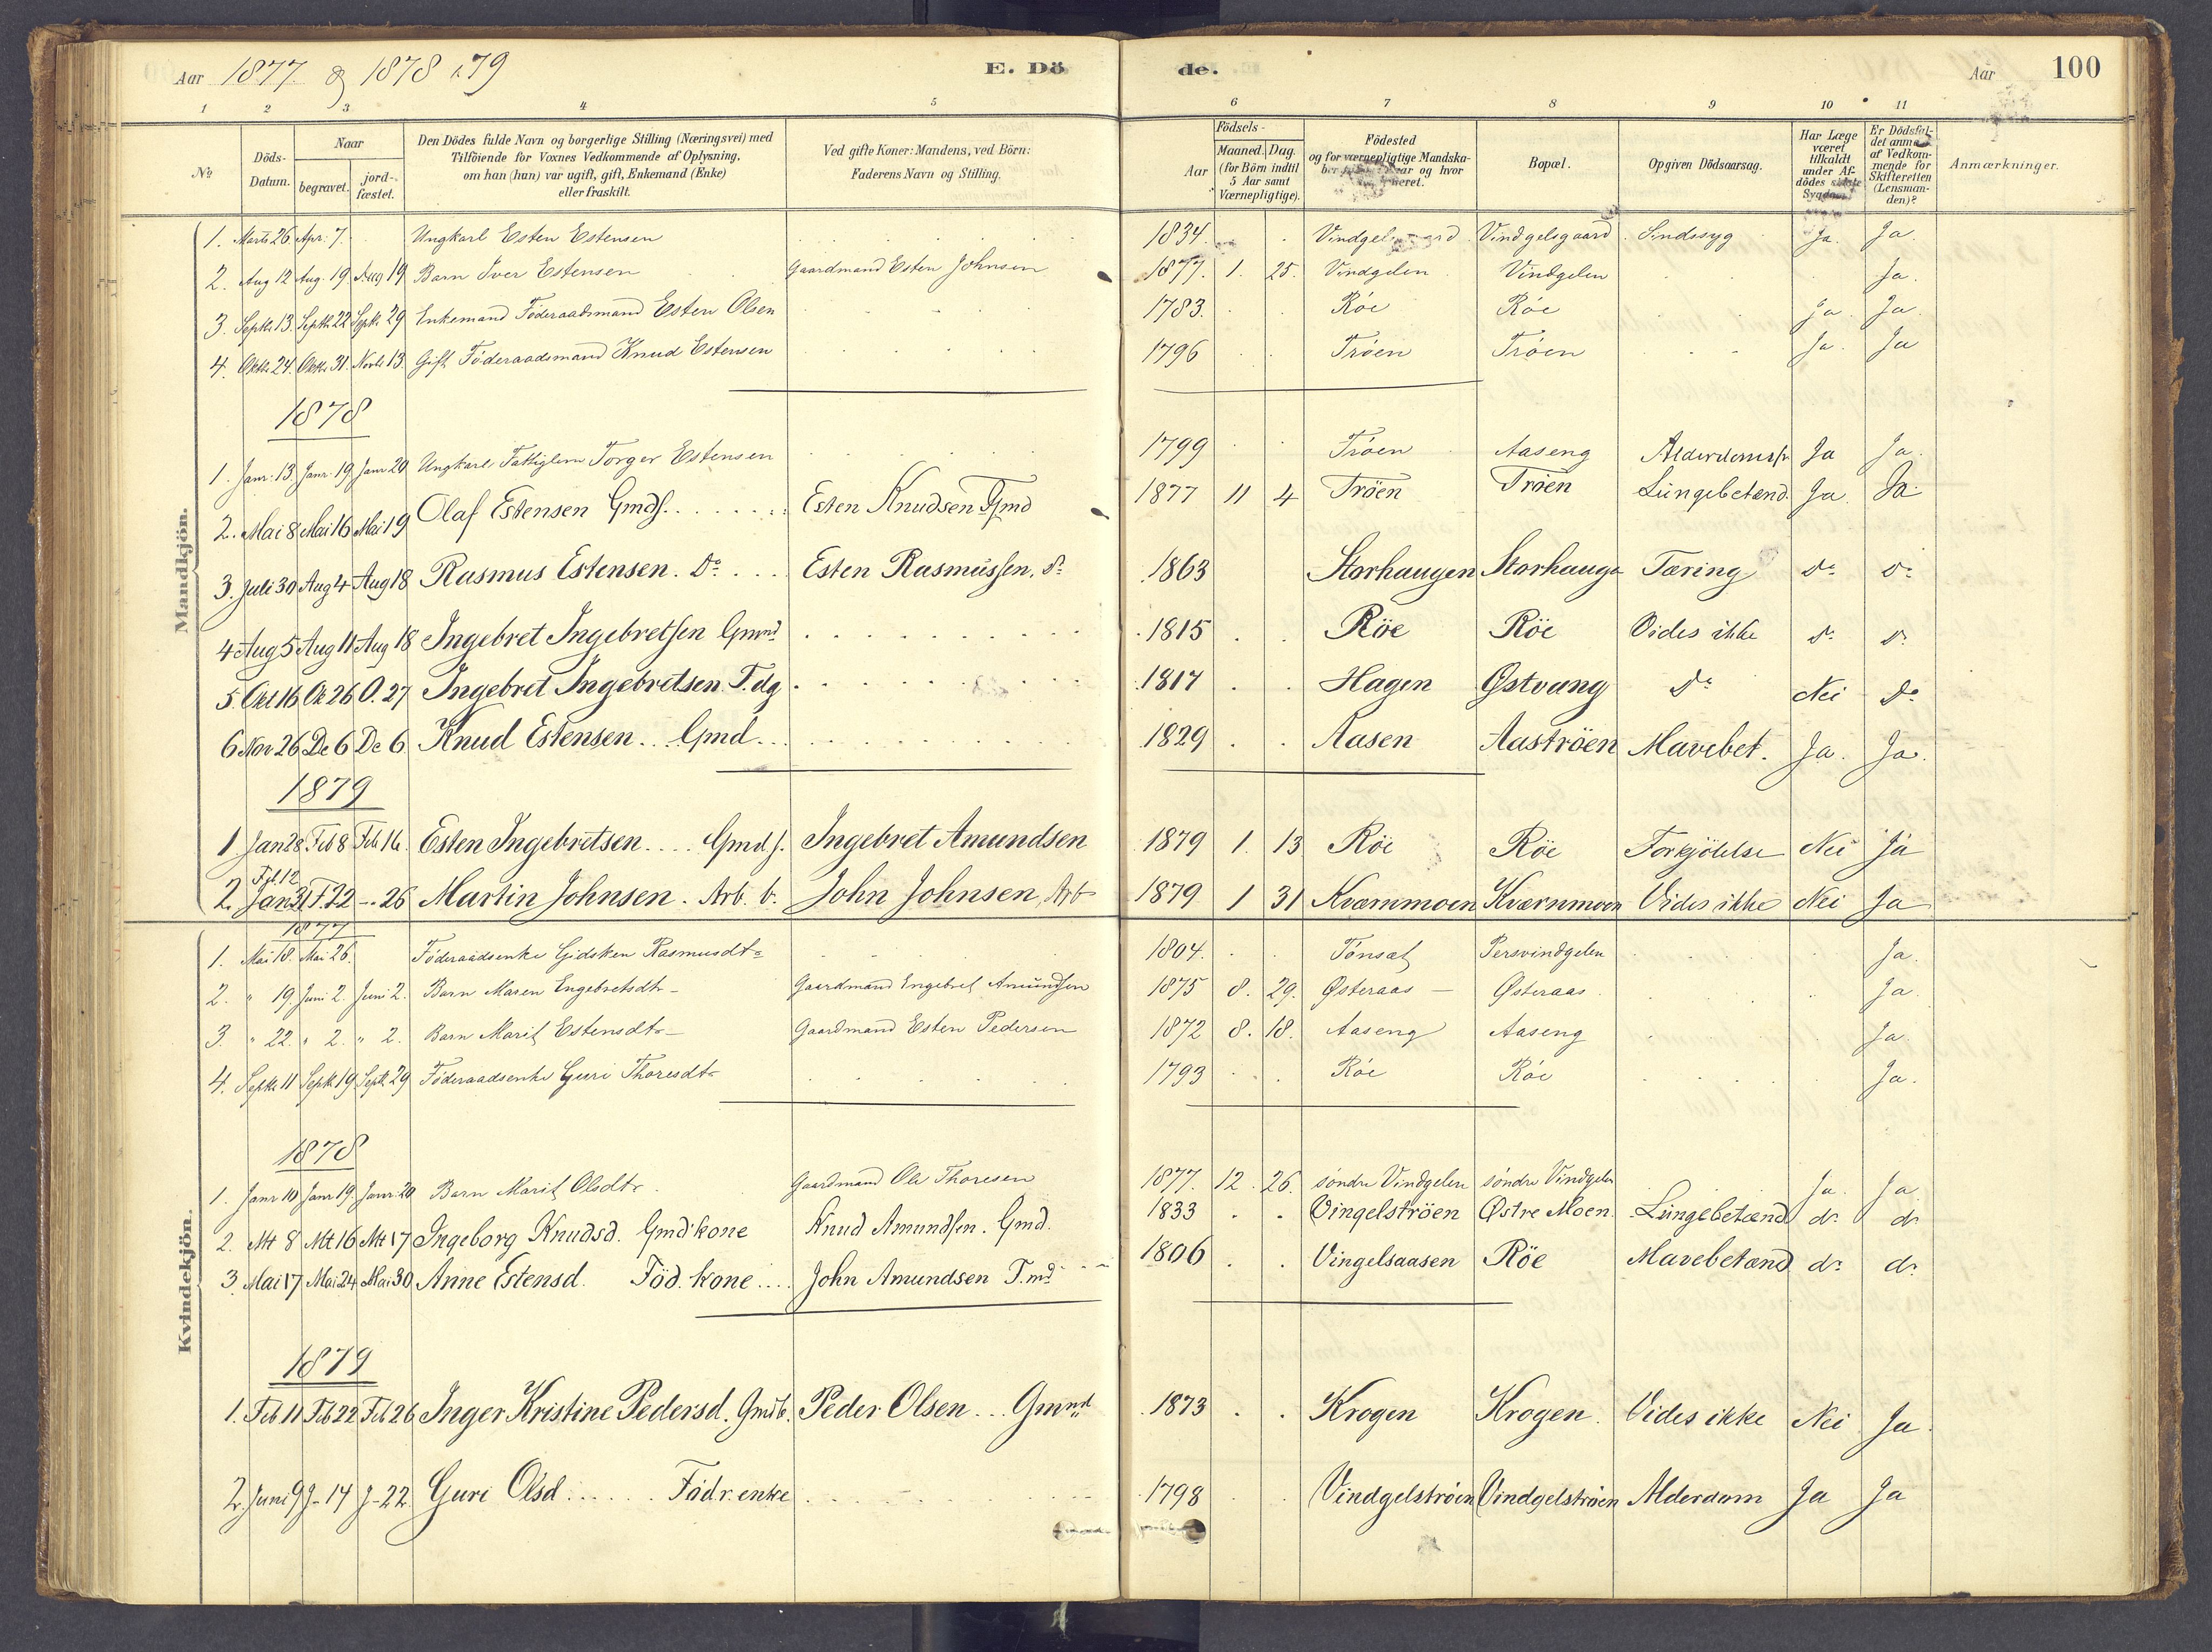 Aar 1877 & 1878 & 79 E. Dö de. Aar 100
1 2 3 4 5 6 7 8 9 10 11
No
Döds-Datum.
Naar
begravet.
jord-fæstet.
Den Dödes fulde Navn og borgerlige Stilling (Næringsvei) med
Tilföiende for Voxnes Vedkommende af Oplysning,
om han (hun) var ugift, gift, Enkemand (Enke)
eller fraskilt.
Ved gifte Koner: Mandens, ved Börn:
Faderens Navn og Stilling.
Födsels-
Aar
Maaned. Dag.
(for Börn indtil
5 Aar samt
Værnepligtige).
Födested
og for værnepligtige Mandska-
Bopæl.
Opgiven Dödsaarsag.
Har Læge
været
tilkaldt
under Af-
dödes sidste
Sygdom
Er Dödsfal-
det anm
af Vedkom-
mende for
Skifteretten
(Lensman-
den)?
Anmærkninger.
Mandkjön.
1. Marts 26. Apr: 7. Ungkarl Esten Estensen 1834. Vindgelsgaard Sindssyg Ja. Ja.
2. Aug 12 Aug. 19. Aug 19 Barn Iver Estensen Gaardmand Esten Johnsen 1877. 1. 25. Vindgelen Vindgelen Ja.
3. Septb. 13. Septb 22 Septb. 29 Enkemand Föderaadsmand Esten Olsen 1783. Röe Röe Ja. Ja.
4. Oktb. 24. Oktb. 31. Novb. 13. Gift Föderaadsmand Knud Estensen 1796 Tröen Tröen Ja. Ja
1878
1. Janr. 13. Janr. 19. Janr 20 Ungkarl Fattiglem Torger Estensen 1799 Tröen Aaseng Alderdomssv Ja Ja.
2. Mai 8 Mai 16 Mai 19 Olaf Estensen Gmds. Esten Knudsen Gmd 1877 11 4 Tröen Tröen Lungebetænd. Ja. Ja.
3. Juli 30 Aug 4 Aug 18 Rasmus Estensen. Do Esten Rasmussen. do 1863 Storhaugen Storhauge Tæring do do
4 Aug 5 Aug 11 Aug 18 Ingebret Ingebretsen Gmnd 1815 Röe Röe Vides ikke do do
5. Okt 16 Ok 26 O. 27 Ingebret Ingebretsen. F. dg 1817 Hagen Østvang do Nei do
6 Nov 26 De 6 De 6 Knud Estensen. Gmd. 1829 Aasen Aaströen Mavebet. Ja. Ja.
1879
1 Jan 28 Feb 8 Feb 16. Esten Ingebretsen. Gmd s. Ingebret Amundsen 1879 1. 13 Röe Röe Forkjölelse Nei Ja
Feb. 12
2. Jan 31 F. 22 -. 26 Martin Johnsen. Arb. b. John Johnsen, Arb 1879 1 31 Kværnmoen Kværnmoen Vides ikke Nei Ja
Kvindekjön.
1877
1. Mai 18. Mai 26. Föderaadsenke Gidsken Rasmusdtr 1804. Tönset Persvindgelen Ja.
2. " 19. Juni 2. Juni 2. Barn Maren Engebretsdtr Gaardmand Engebret Amundsen 1875 8. 29. Østeraas Østeraas Ja.
3. " 22. " 2. " 2. Barn Marit Estensdtr Gaardmand Esten Pedersen 1872 8. 18. Aaseng Aaseng Ja.
4. Septb. 11 Septb. 19 Septb. 29 Föderaadsenke Guri Thoresdtr 1793 Röe Röe Ja.
1878
1. Janr 10 Janr 19. Janr. 20 Barn Marit Olsdtr. Gaardmand Ole Thoresen 1877. 12. 26. söndre Vindgelen söndre Vindgelen Ja. Ja
2. Mt 8 Mt 16 Mt 17 Ingeborg Knudsd. Gmd kone Knud Amundsen. Gmd. 1833 Vingelströen Østre Moen. Lungebetænd do do
3. Mai 17 Mai 24 Mai 30 Anne Estensd. Föd. kone John Amundsen F. md 1806 Vingelsaasen Röe Mavebetænd do do
1879
1. Feb 11 Feb 22 Feb 26 Inger Kristine Pedersd. Gmd b. Peder Olsen Gmnd 1873 Krogen Krogen. Vides ikke Nei Ja.
2. Juni 9 J- 14 J- 22. Guri Olsd. Födr. enke 1798 Vindgelströen Vindgelströen Alderdom Ja Ja